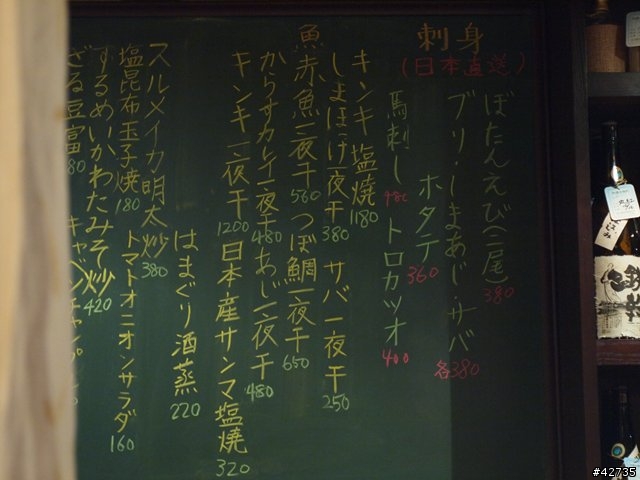 刺身
(日本直送)
ぼたんえび(二尾) 380
ブリ・しまあじ・サバ 各380
ホタテ 360
馬刺し 480
トロカツオ 400
魚
キンキ塩焼 1180
しまほっけ一夜干 380
サバ一夜干 250
赤魚一夜干 560
つぼ鯛一夜干 650
からすカレイ一夜干 480
あじ一夜干 480
キンキ一夜干 1200
日本産サンマ塩焼 320
はまぐり酒蒸 220
スルメイカ明太炒 380
塩昆布玉子焼 180
トマトオニオンサラダ 160
するめいかわたみそ炒 420
ざる豆富 80
#42735